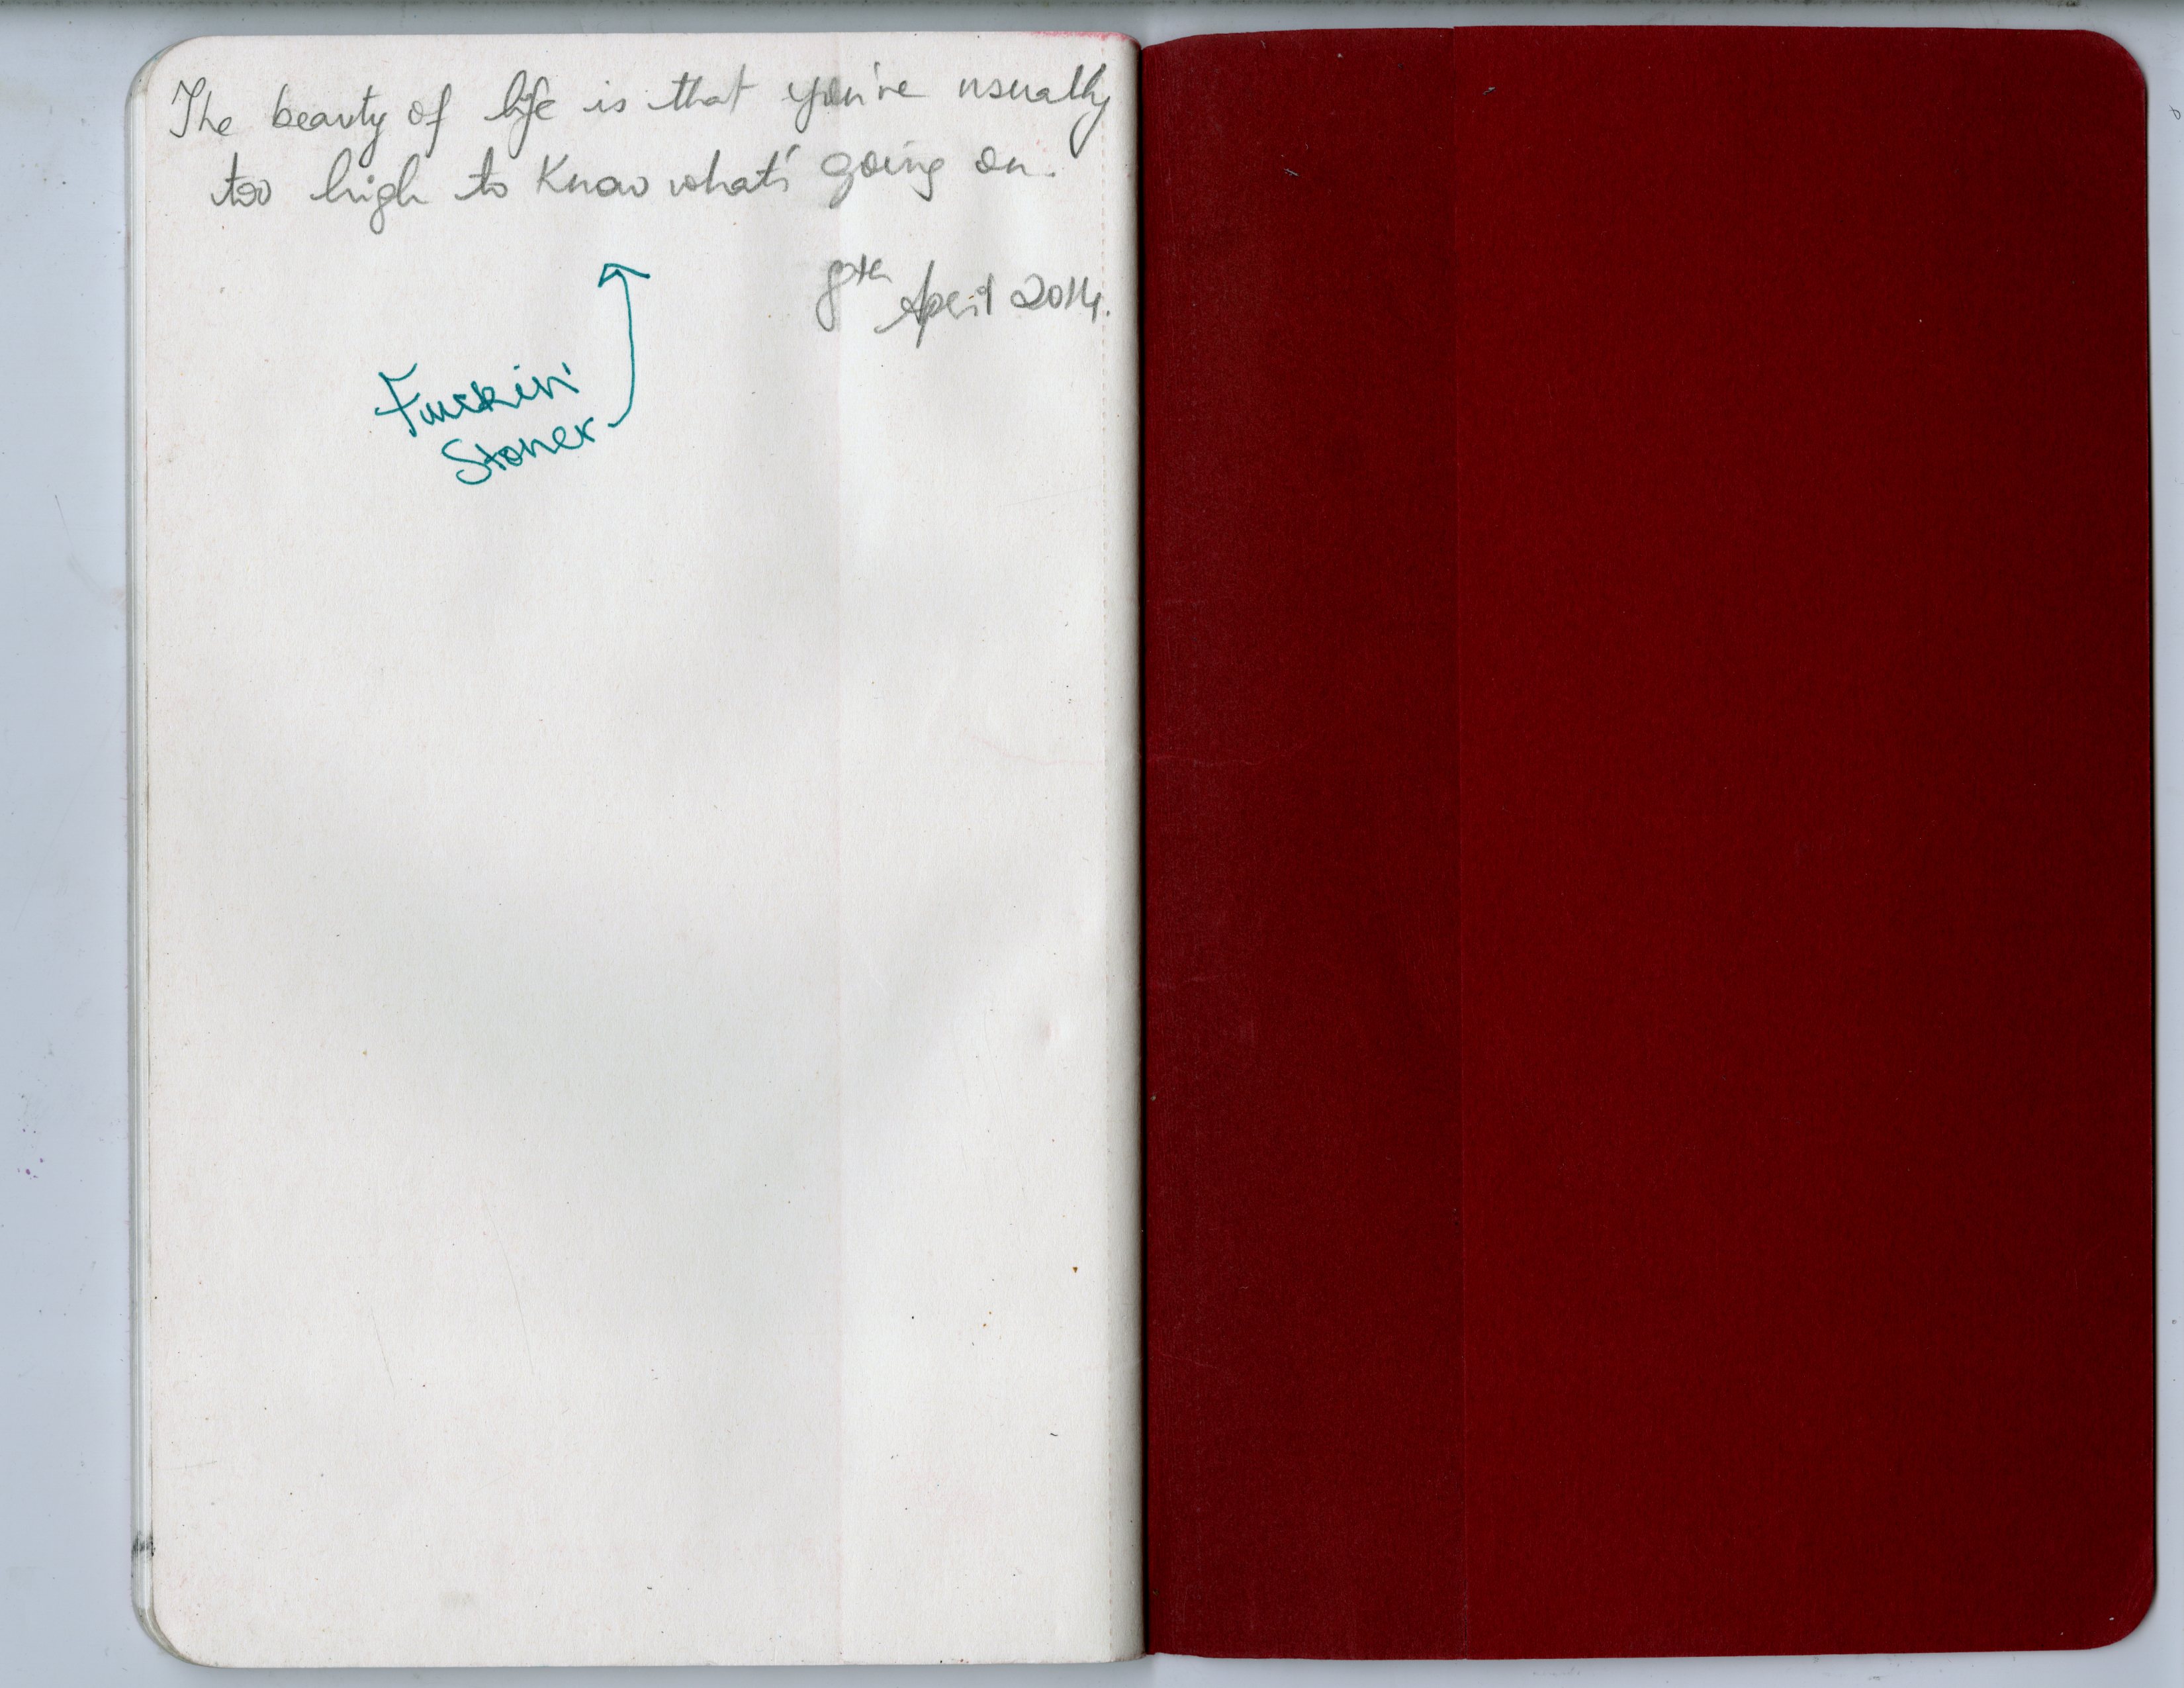 The beauty of life is that you're usually
too high to know what's going on.
8th April 2014.
Fuckin'
Stoner